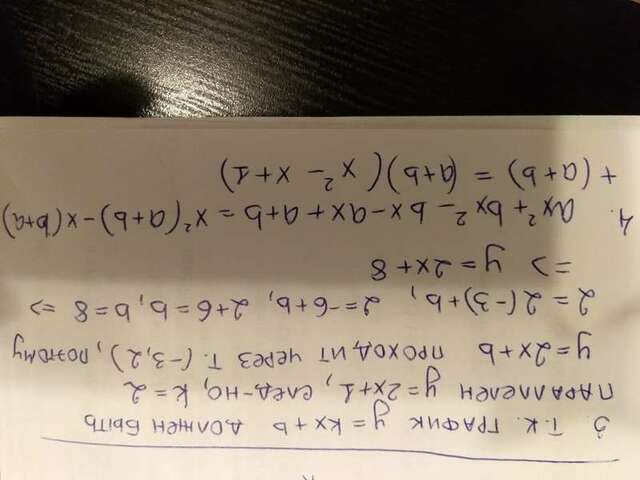 3. Т.К. ГРАФИК y = kx + b ДОЛЖЕН БЫТЬ
ПАРАЛЛЕЛЕН y = 2x+1, СЛЕД-НО, k = 2
y = 2x + b ПРОХОДИТ ЧЕРЕЗ Т. (-3,2), ПОЭТОМУ
2 = 2(-3)+b, 2 = -6+b, 2+6 = b, b = 8 =>
=> y = 2x + 8
4. ax² + bx² - bx - ax + a + b = x²(a+b) - x(b+a)
+ (a+b) = (a+b)(x² - x + 1)